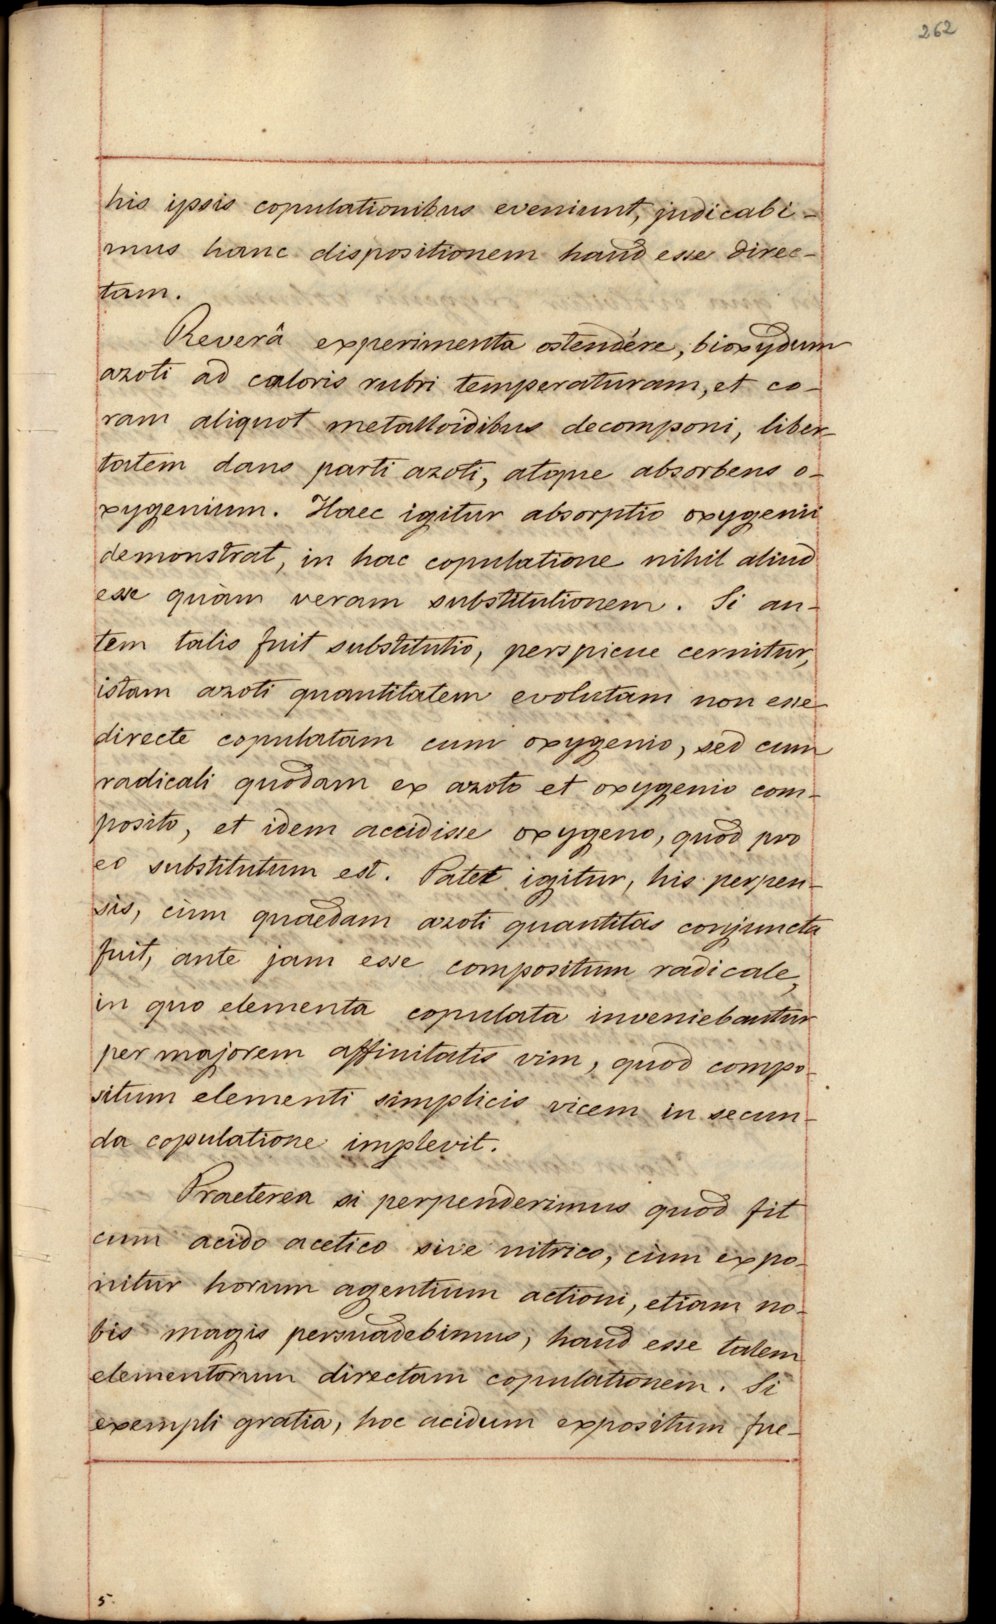 262
his ipsis copulationibus eveniunt, judicabi-
mus hanc dispositionem haud esse direc-
tam.
Reverâ experimenta ostendére, bioxydum
azoti ad caloris rubri temperaturam, et co-
ram aliquot metalloidibus decomponi, liber-
tatem dans parti azoti, atque absorbens o-
xygenium. Haec igitur absorptio oxygenii
demonstrat, in hac copulatione nihil aliud
esse quàm veram substitutionem. Si au-
tem talis fuit substitutio, perspicue cernitur,
istam azoti quantitatem evolutam non esse
directe copulatam cum oxygenio, sed cum
radicali quodam ex azoto et oxygenio com-
posito, et idem accidisse oxygeno, quod pro
eo substitutum est. Patet igitur, his perpen-
sis, cùm quaedam azoti quantitas conjuncta
fuit, ante jam esse compositum radicale,
in quo elementa copulata inveniebantur
per majorem affinitatis vim, quod compo-
situm elementi simplicis vicem in secun-
da copulatione implevit.
Praeterea si perpenderimus quod fit
cum acido acetico sive nitrico, cùm expo-
nitur horum agentium actioni, etiam no-
bis magis persuadebimus, haud esse talem
elementorum directam copulationem. Si
exempli gratia, hoc acidum expositum fue-
5.